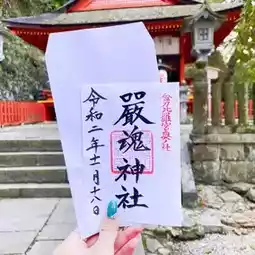 金刀比羅宮奥社
嚴魂神社
令和二年十一月十八日